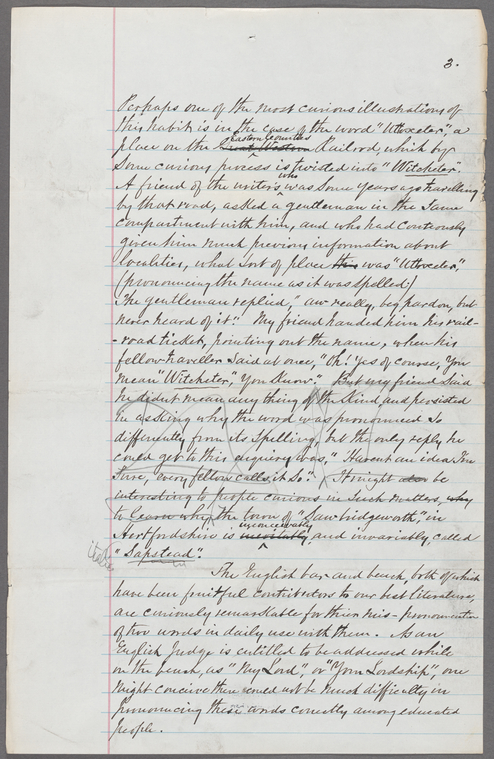 3.
Perhaps one of the most curious illustrations of
this habit, is in the case of the word "Uttoxeter," a
Eastern Counties
place on the Great Western Railroad, which by
some curious process is twisted into "Witcheter".
who
A friend of the writer's was some years ago travelling
by that road, asked a gentleman in the same
compartment with him, and who had courteously
given him much previous information about
localities, what sort of place this was "Uttoxeter,"
(pronouncing the name as it was spelled)
The gentleman replied, "aw really, beg pardon, but
never heard of it". My friend handed him his rail-
-road ticket, pointing out the name, when his
fellow-traveller said at once, "Oh! yes of course, you
mean "Witcheter," you Know". But my friend said
he didn't mean any thing of the Kind and persisted
in asking why the word was pronounced so
differently from its spelling, but the only reply he
could get to this enquiry was, "Haven't an idea I'm
sure, every fellow calls it so". It might also be
interesting to people curious in such matters, why
to learn why the town of "Sawbridgeworth," in
unconceivably
Hertfordshire is inevitably, and invariably, called
italic
"Sapstead".
The English bar and bench, both of which
have been fruitful contributors to our best literature,
are curiously remarkable for their mis-pronunciation
of two words in daily use with them. As an
English Judge is entitled to be addressed while
on the bench, as "My Lord", or "Your Lordship", one
might conceive there would not be much difficulty in
pronouncing these words correctly among educated
people.